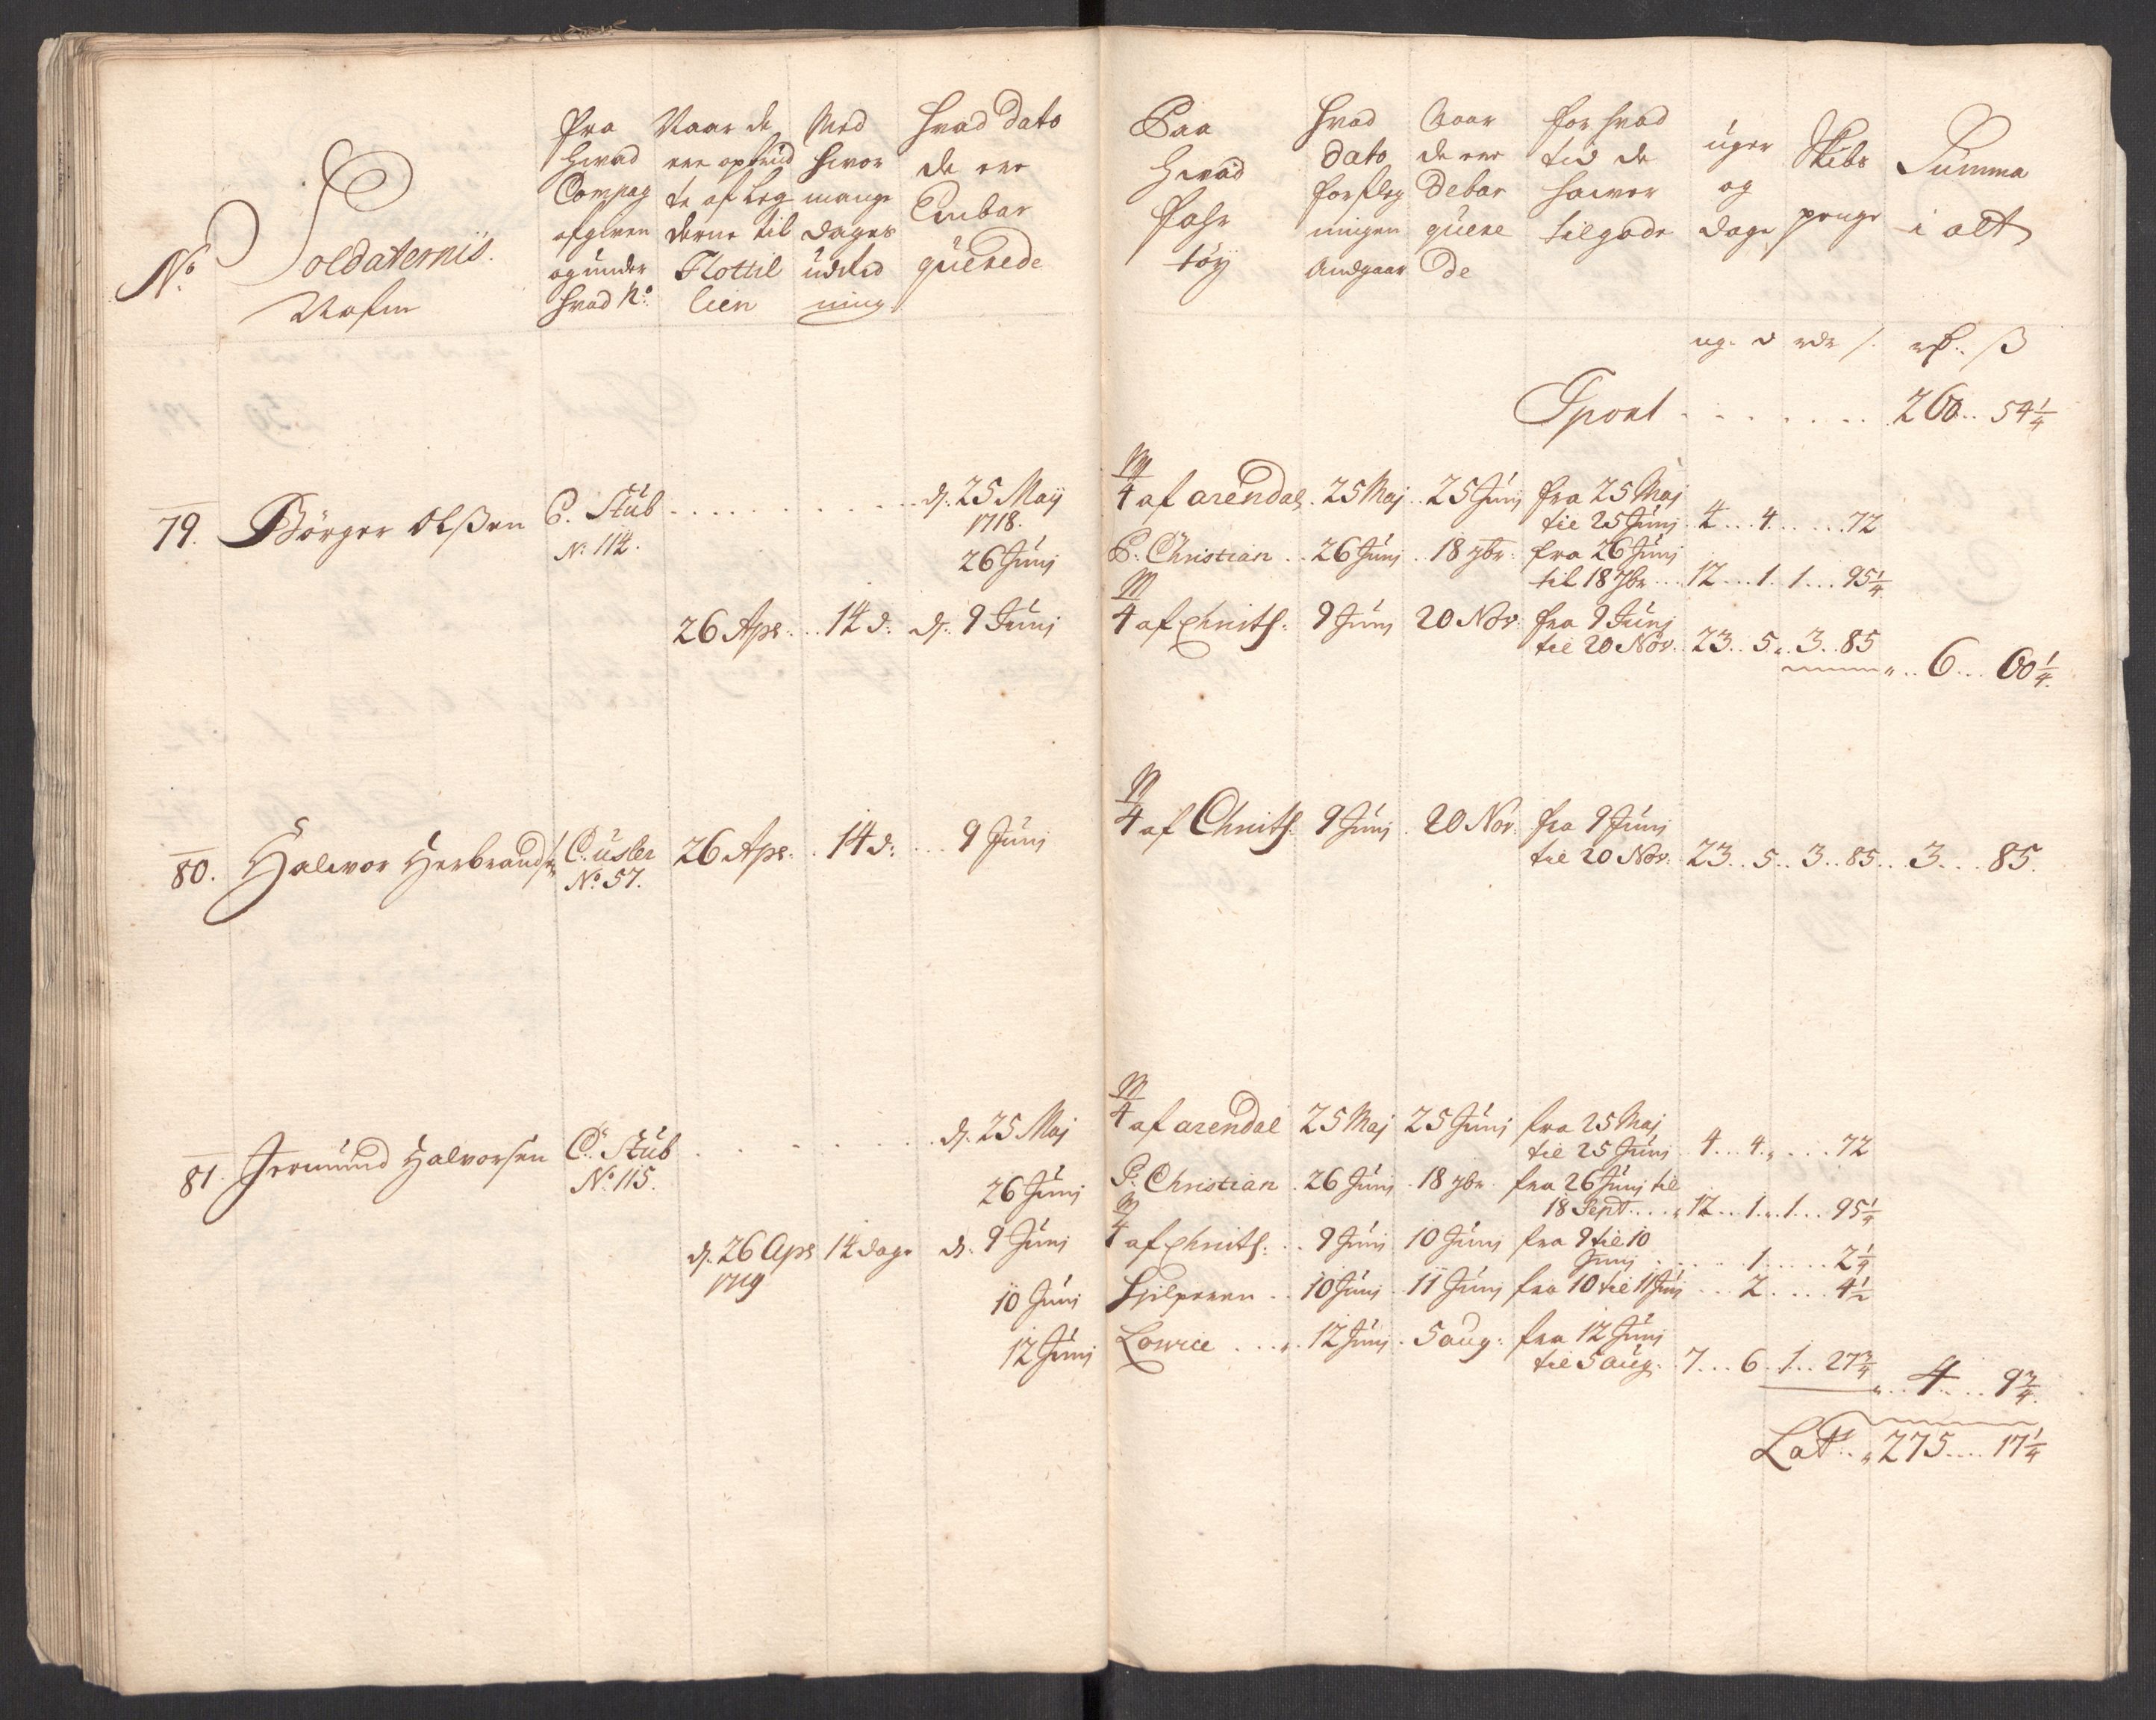 No
Soldaternis.
Nafn
Fra
hvad
Compag
afgiven
og under
hvad No.
Naar de
ere opbud
te af Leg
derne til
Flottil
lien
Med
hvor
mange
dages
udred
ning
Hvad Dato
de ere
Enbar
querede
Paa
Hvad
Fahr
töy
Hvad
Dato
forfleg
ningen
Andgaar
Naar
de ere
Debar
quere
de
for hvad
tid de
hawer
tilgode
uger
og
dage
Skibs
penge
Summa
i alt
ug. d rdr /. rd.. ß
Tport . . . . . . . 260.. 54 1/4
79. Börger Olßen C. Stüb . . . . . d. 25 Maij
No. 114.
1718.
26 Junj
26 Apr. . . 14 d: d. 9 Junj
M/4 af arendal . 25 Maj . 25 Junj fra 25 Maj
til 25 Junj 4 . . 4 . . . . 72
P. Christian . . 26 Junj . 18 7br: fra 26 Junj
til 18 7br . . 12 . . 1 . 1 . . 95 1/4
M/4 af Christ: 9 Junj 20 Nov: fra 9 Junj
til 20 Nov. 23 . . 5 . 3 . . 85
. . 6 . . . 60 1/4
80. Halvor Herbrands: C. üsler 26 Apr. . 14 d: . . . 9 Junj
No. 57.
M/4 af Christ: 9 Junj . 20 Nov. fra 9 Junj
til 20 Nov. 23 . . 5 . . 3 . . 85 . . 3 . . . 85.
81. Jermund Halvorsen C. Stüb . . . . . d. 25 Maj
No. 115.
26 Junj
d. 26 Apr 14 dage d. 9 Junj
1719
10 Junj
12 Junj
M/4 af arendal 25 Maj 25 Junj fra 25 Maj
til 25 Junj 4 . . 4 . . . . 72
P. Christian . 26 Junj . 18 7br. fra 26 Junj til
18 Sept . . . . 12 . . 1 . . 1 . . . 95 1/4
M/4 af Christ: . . 9 Junj 10 Junj fra 9 til 10
Junj . . . . . 1 . . . . . 2 1/4
Hielperen . . 10 Junj . 11 Junj fra 10 til 11 Junj . . . 2 . . . . 4 1/2
Lowise . . . . 12 Junj . 5 aug: fra 12 Junj
til 5 aug. 7 . . . 6 . 1 . . 27 3/4
. . 4 . . . 9 3/4.
Lat . . 275 . . . 17 1/4